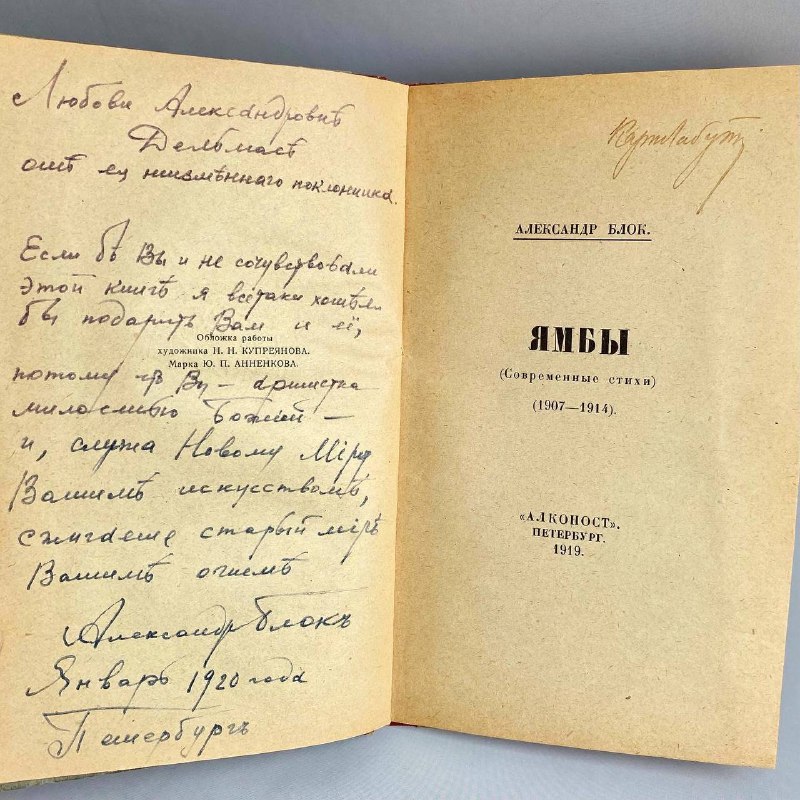 Любови Александровнѣ
Дельмасъ
отъ ея неизмѣннаго поклонника.
Если бъ Вы и не сочувствовали
этой книгѣ я всетаки хотѣлъ
бы подарить Вам и её,
Обложка работы
художника Н. Н. КУПРЕЯНОВА.
Марка Ю. П. АННЕНКОВА.
потому что Вы — артистка
милостью Божьей —
и, служа Новому Мiру
Вашимъ искусствомъ,
сжигаете старый мiръ
Вашимъ огнемъ
Александръ Блокъ
Январь 1920 года
Петербургъ
АЛЕКСАНДР БЛОК.
ЯМБЫ
(Современные стихи)
(1907—1914).
«АЛКОНОСТ».
ПЕТЕРБУРГ.
1919.